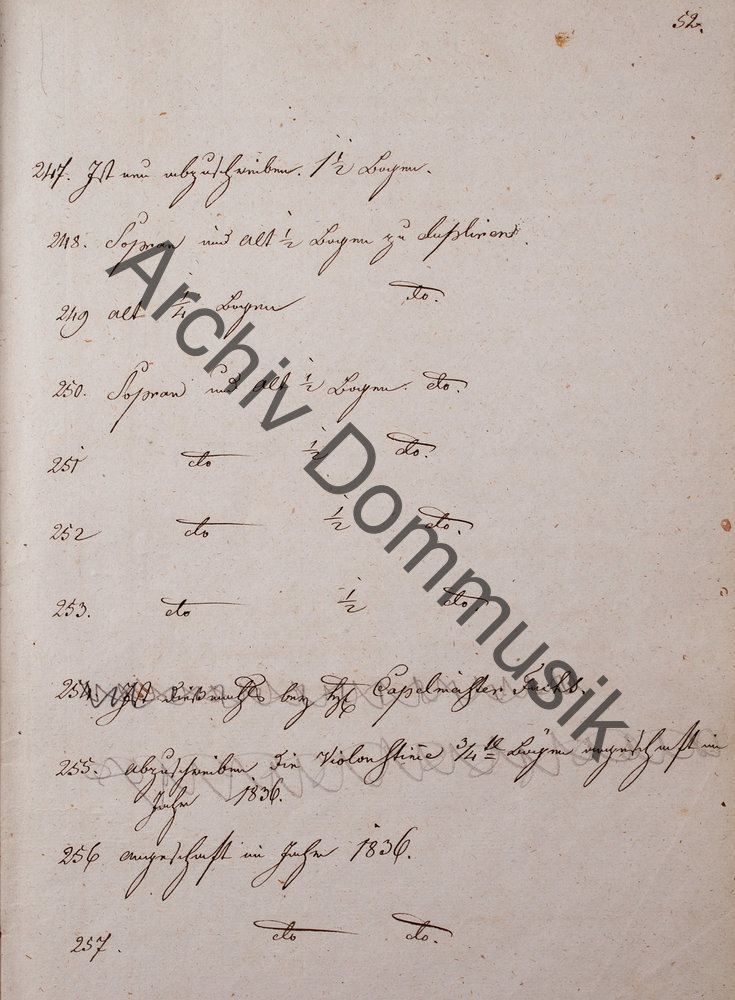 52.
247. Ist neu abzuschreiben. 1 1/2 Bogen.
248. Sopran und Alt 1/2 Bogen zu dupliren.
249 Alt 1/4 Bogen do.
250. Sopran und Alt 1/2 Bogen. do.
251 do 1/2 do.
252 do 1/2 do.
253. do 1/2 do.
254. Ist bey H. Capelmeister Fuchs.
255. abzuschreiben die Violonstime 3/4 Bögen angeschaft im
Jahr 1836.
256 angeschaft im Jahr 1836.
257. do do.
Archiv Dommusik